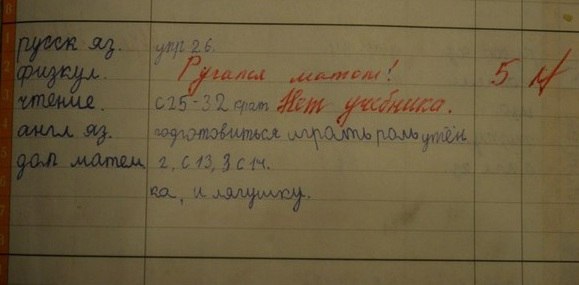 русск яз. упр 26.
физкул. Ругался матом! 5
чтение. с25-32 Нет учебника.
англ яз. подготовиться играть роль утён
доп матем 2, с 13, 3 с 14.
ка, и лягушку.